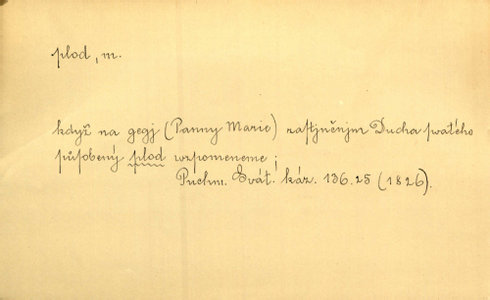 plod, m.
když na gegj (Panny Marie) zastjněnjm Ducha swatého
působený plod wzpomeneme;
Puchm. Svát. káz. 136.25 (1826).